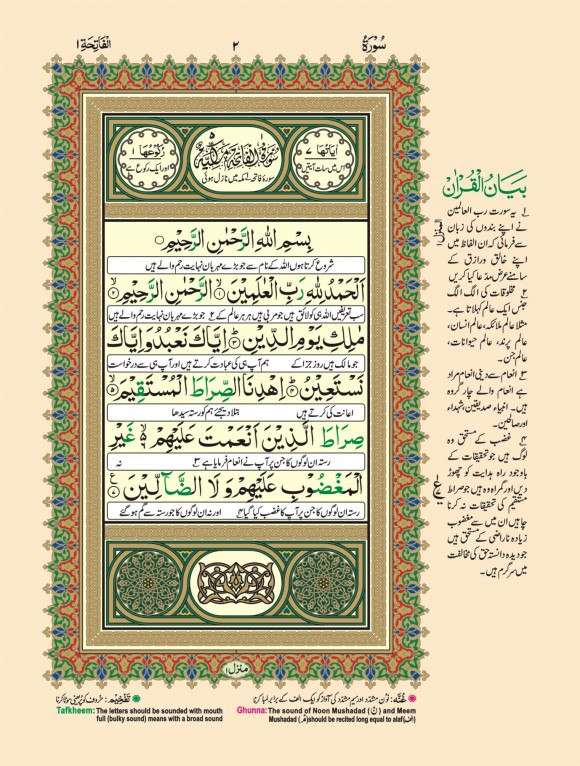 سُورَة
۲
الفَاتِحَة ۱
اٰیَاتُهَا ۷
اس میں سات آیتیں
سُوْرَةُ الْفَاتِحَةِ مَكِّيَّةٌ ۵
سورۃ فاتحہ مکہ میں نازل ہوئی
رُكُوْعُهَا ۱
اور ایک رکوع ہے
بِسْمِ اللهِ الرَّحْمٰنِ الرَّحِيْمِ ۝
شروع کرتا ہوں اللہ کے نام سے جو بڑے مہربان نہایت رحم والے ہیں
اَلْحَمْدُ لِلّٰهِ رَبِّ الْعٰلَمِيْنَ ۝۱ الرَّحْمٰنِ الرَّحِيْمِ ۝۲
سب تعریفیں اللہ ہی کو لائق ہیں جو مربی ہیں ہر ہر عالم کے ۲ جو بڑے مہربان نہایت رحم والے ہیں
مٰلِكِ يَوْمِ الدِّيْنِ ۝۳ اِيَّاكَ نَعْبُدُ وَاِيَّاكَ
جو مالک ہیں روز جزا کے ہم آپ ہی کی عبادت کرتے ہیں اور آپ ہی سے درخواست
نَسْتَعِيْنُ ۝۴ اِهْدِنَا الصِّرَاطَ الْمُسْتَقِيْمَ ۝۵
اعانت کی کرتے ہیں بتلا دیجئے ہم کو رستہ سیدھا
صِرَاطَ الَّذِيْنَ اَنْعَمْتَ عَلَيْهِمْ ۝۶ غَيْرِ
رستہ ان لوگوں کا جن پر آپ نے انعام فرمایا ہے ۳ نہ
الْمَغْضُوْبِ عَلَيْهِمْ وَلَا الضَّآلِّيْنَ ۝۷
رستہ ان لوگوں کا جن پر آپ کا غضب کیا گیا ۴ اور نہ ان لوگوں کا جو رستہ سے گم ہو گئے
منزل ۱
بَيَانُ الْقُرْآن
۱ یہ سورت رب العالمین
نے اپنے بندوں کی زبان
سے فرمائی کہ ان الفاظ میں
اپنے خالق و رازق کے
سامنے عرض مدعا کیا کریں
۲ مخلوقات کی الگ الگ
جنس ایک عالم کہلاتا ہے۔
مثلا عالم ملائکہ، عالم انسان،
عالم پرند، عالم حیوانات،
عالم جن۔
۳ انعام سے دینی انعام مراد
ہے انعام والے چار گروہ
ہیں۔ انبیاء صدیقین، شہداء
اور صالحین۔
۴ غضب کے مستحق وہ
لوگ ہیں جو تحقیقات کے
باوجود راہ ہدایت کو چھوڑ
دیں اور گمراہ وہ ہیں جو صراط
مستقیم کی تحقیقات نہ کرنا
چاہیں ان میں سے مغضوب
زیادہ ناراضی کے مستحق ہیں
جو دیدہ دانستہ حق کی مخالفت
میں سرگرم ہیں۔
غُنَّہ: نون مشدد اور میم مشدد کی آواز کو ایک الف کے برابر لمبا کرنا
Ghunna: The sound of Noon Mushadad (نّ) and Meem
Mushadad (مّ) should be recited long equal to alaf (الف)
تَفْخِیْم: حروف کو پُر یعنی موٹا کرنا
Tafkheem: The letters should be sounded with mouth
full (bulky sound) means with a broad sound